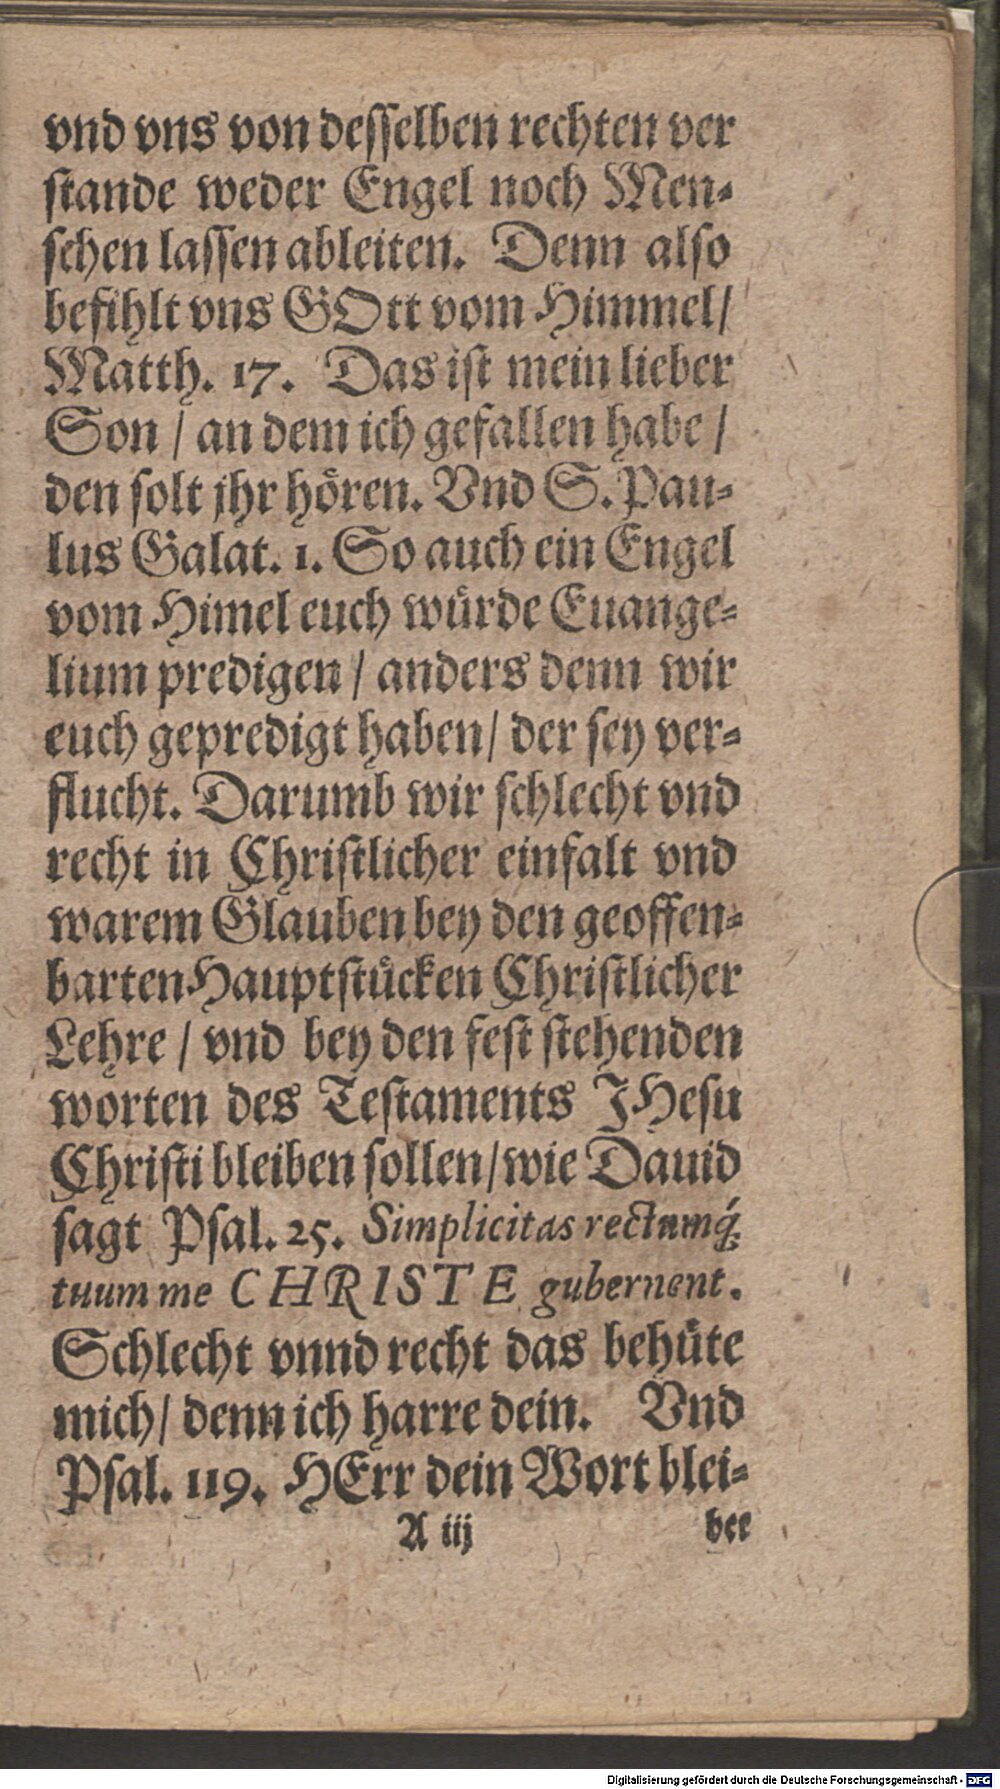 vnd vns von desselben rechten ver
stande weder Engel noch Men-
schen lassen ableiten. Denn also
befihlt vns GOtt vom Himmel/
Matth. 17. Das ist mein lieber
Son / an dem ich gefallen habe /
den solt jhr hören. Vnd S. Pau-
lus Galat. 1. So auch ein Engel
vom Himel euch würde Euange-
lium predigen / anders denn wir
euch gepredigt haben/ der sey ver-
flucht. Darumb wir schlecht vnd
recht in Christlicher einfalt vnd
warem Glauben bey den geoffen-
barten Hauptstücken Christlicher
Lehre / vnd bey den fest stehenden
worten des Testaments JHesu
Christi bleiben sollen/wie Dauid
sagt Psal. 25. Simplicitas rectumq́;
tuum me CHRISTE gubernent.
Schlecht vnnd recht das behüte
mich/ denn ich harre dein. Vnd
Psal. 119. HErr dein Wort blei-
A iij bee
Digitalisierung gefördert durch die Deutsche Forschungsgemeinschaft - DFG